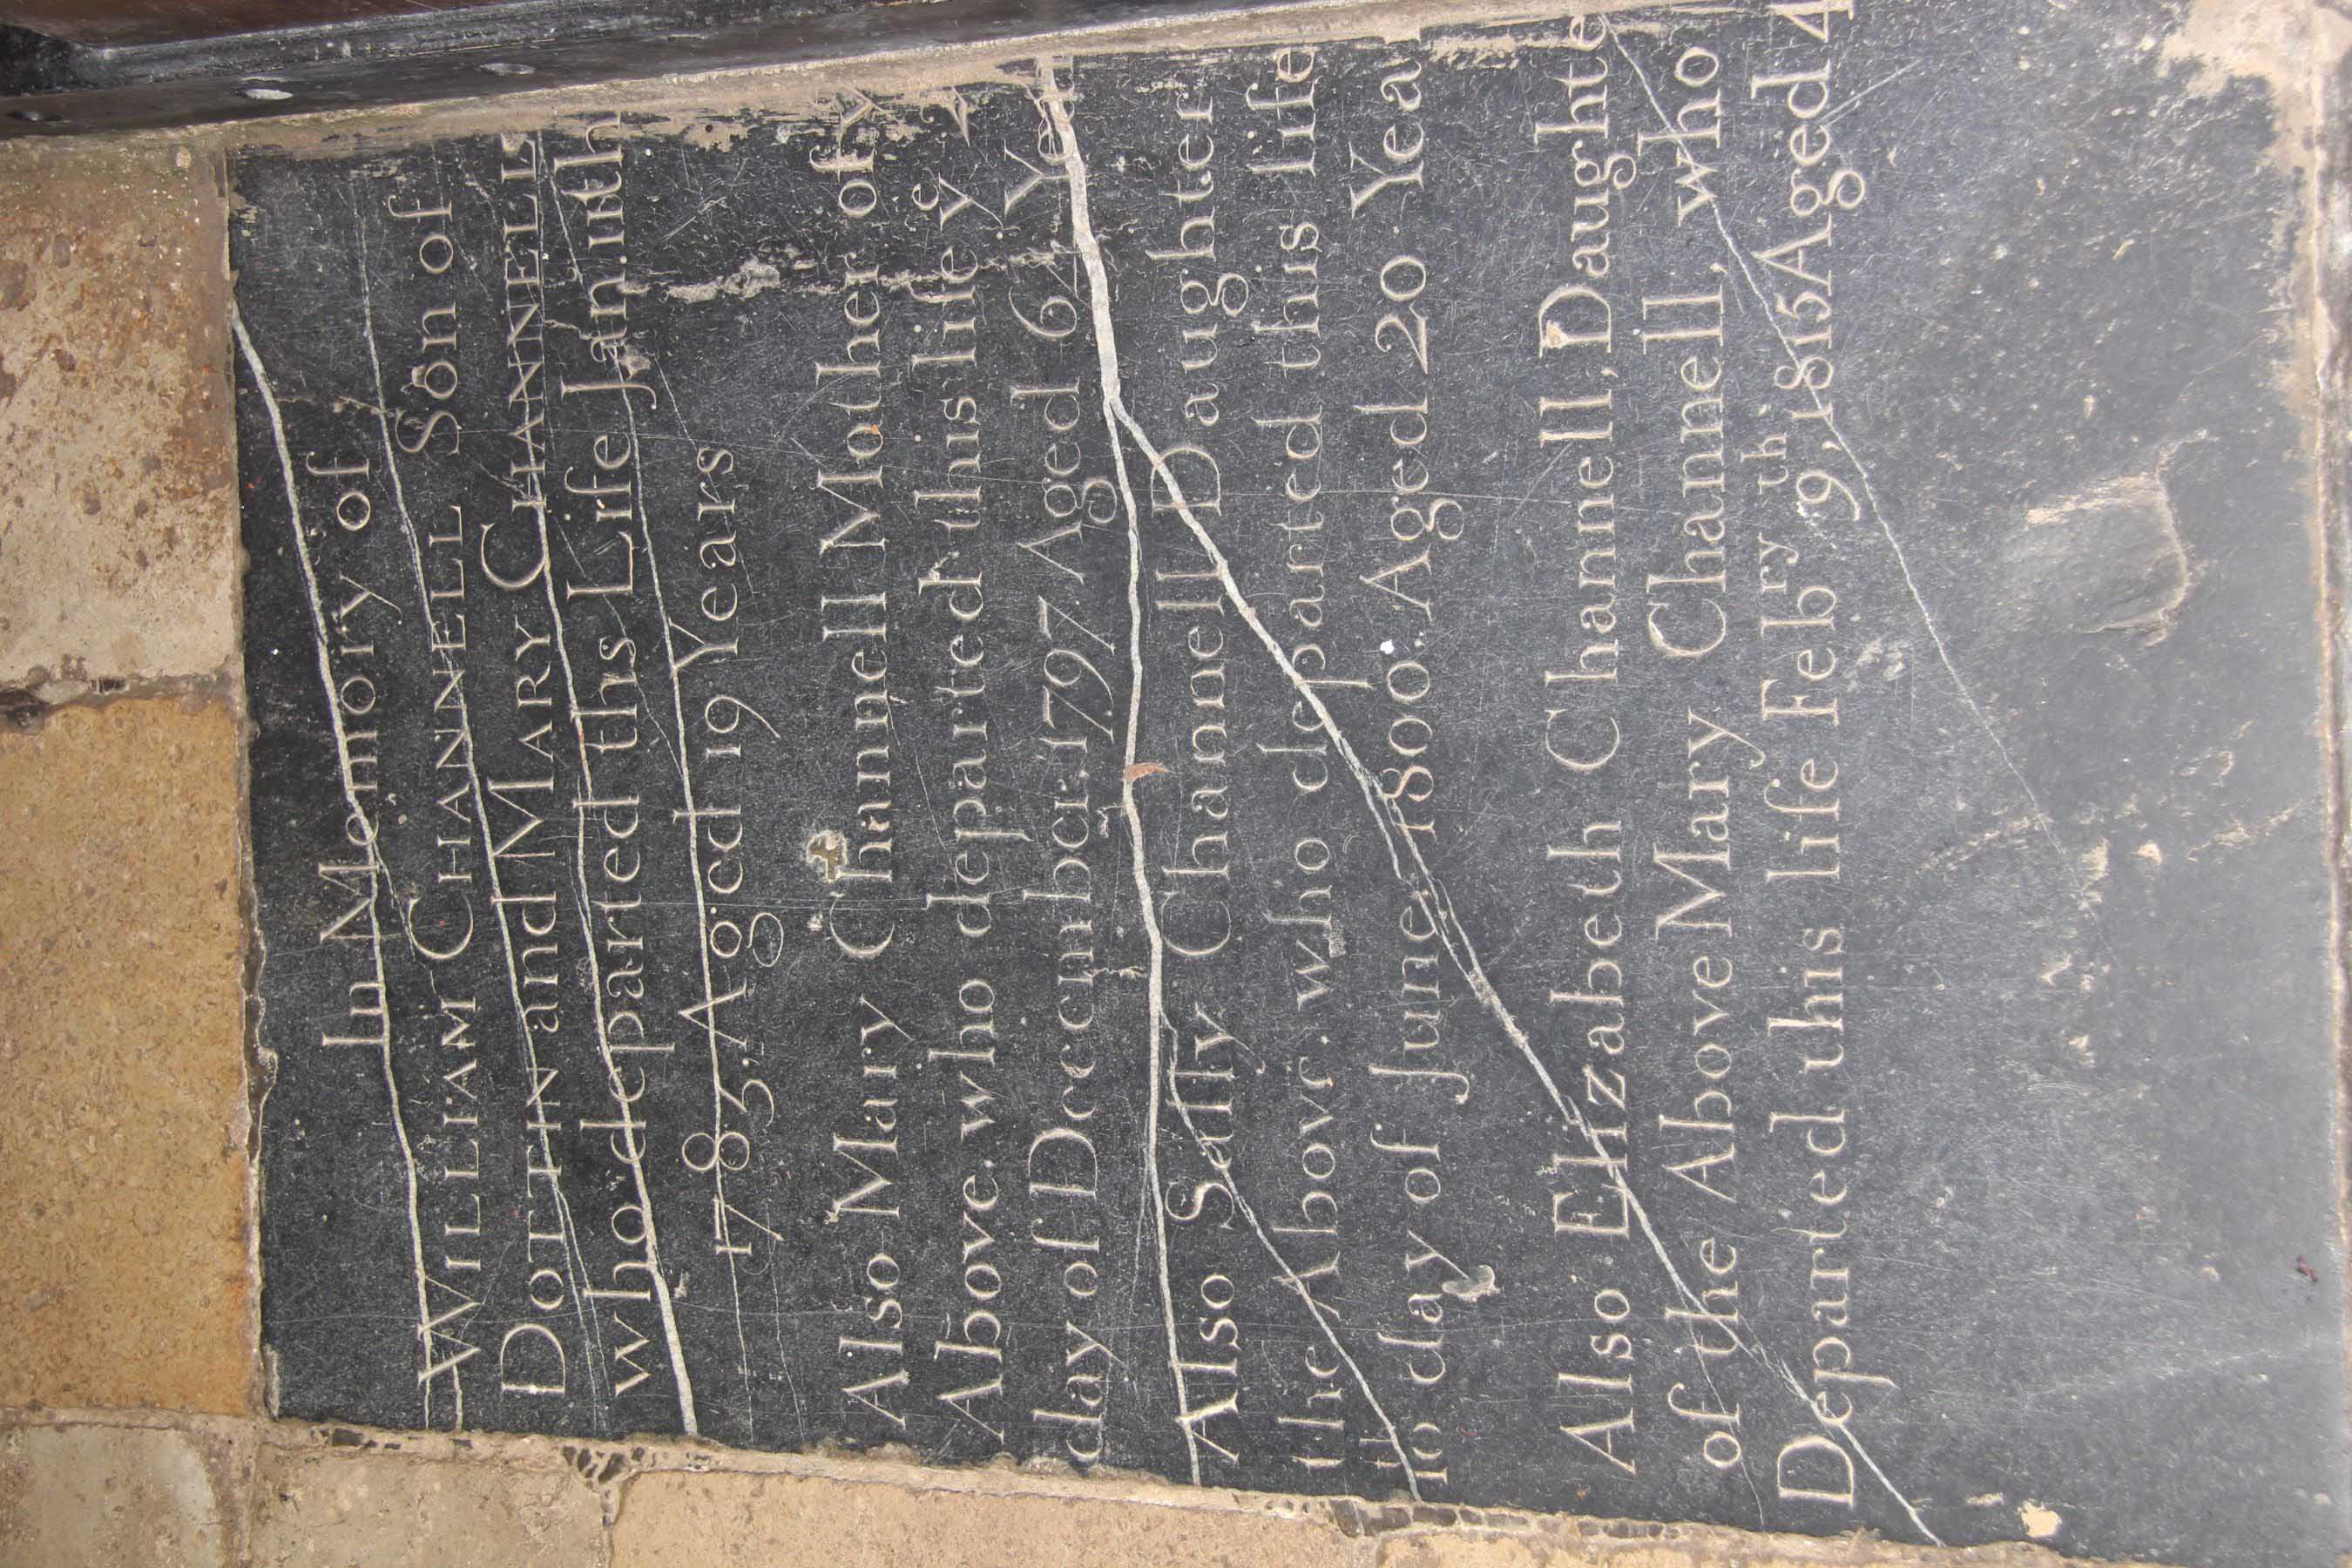 In Memory of
WILLIAM CHANNELL Son of
DOTTIN and MARY CHANNELL
who departed ths Life Jan. 11th
1785. Aged 19 Years
Also Mary Channell Mother of y
Above who departed this life yͤ
day of December 1797 Aged 62 Yea
Also Sally Channell Daughter
the Above who departed this life
10 day of June 1800. Aged 20 Yea
Also Elizabeth Channell, Daughte
of the Above Mary Channell, who
Departed this life Febry 9th, 1815 Aged 4